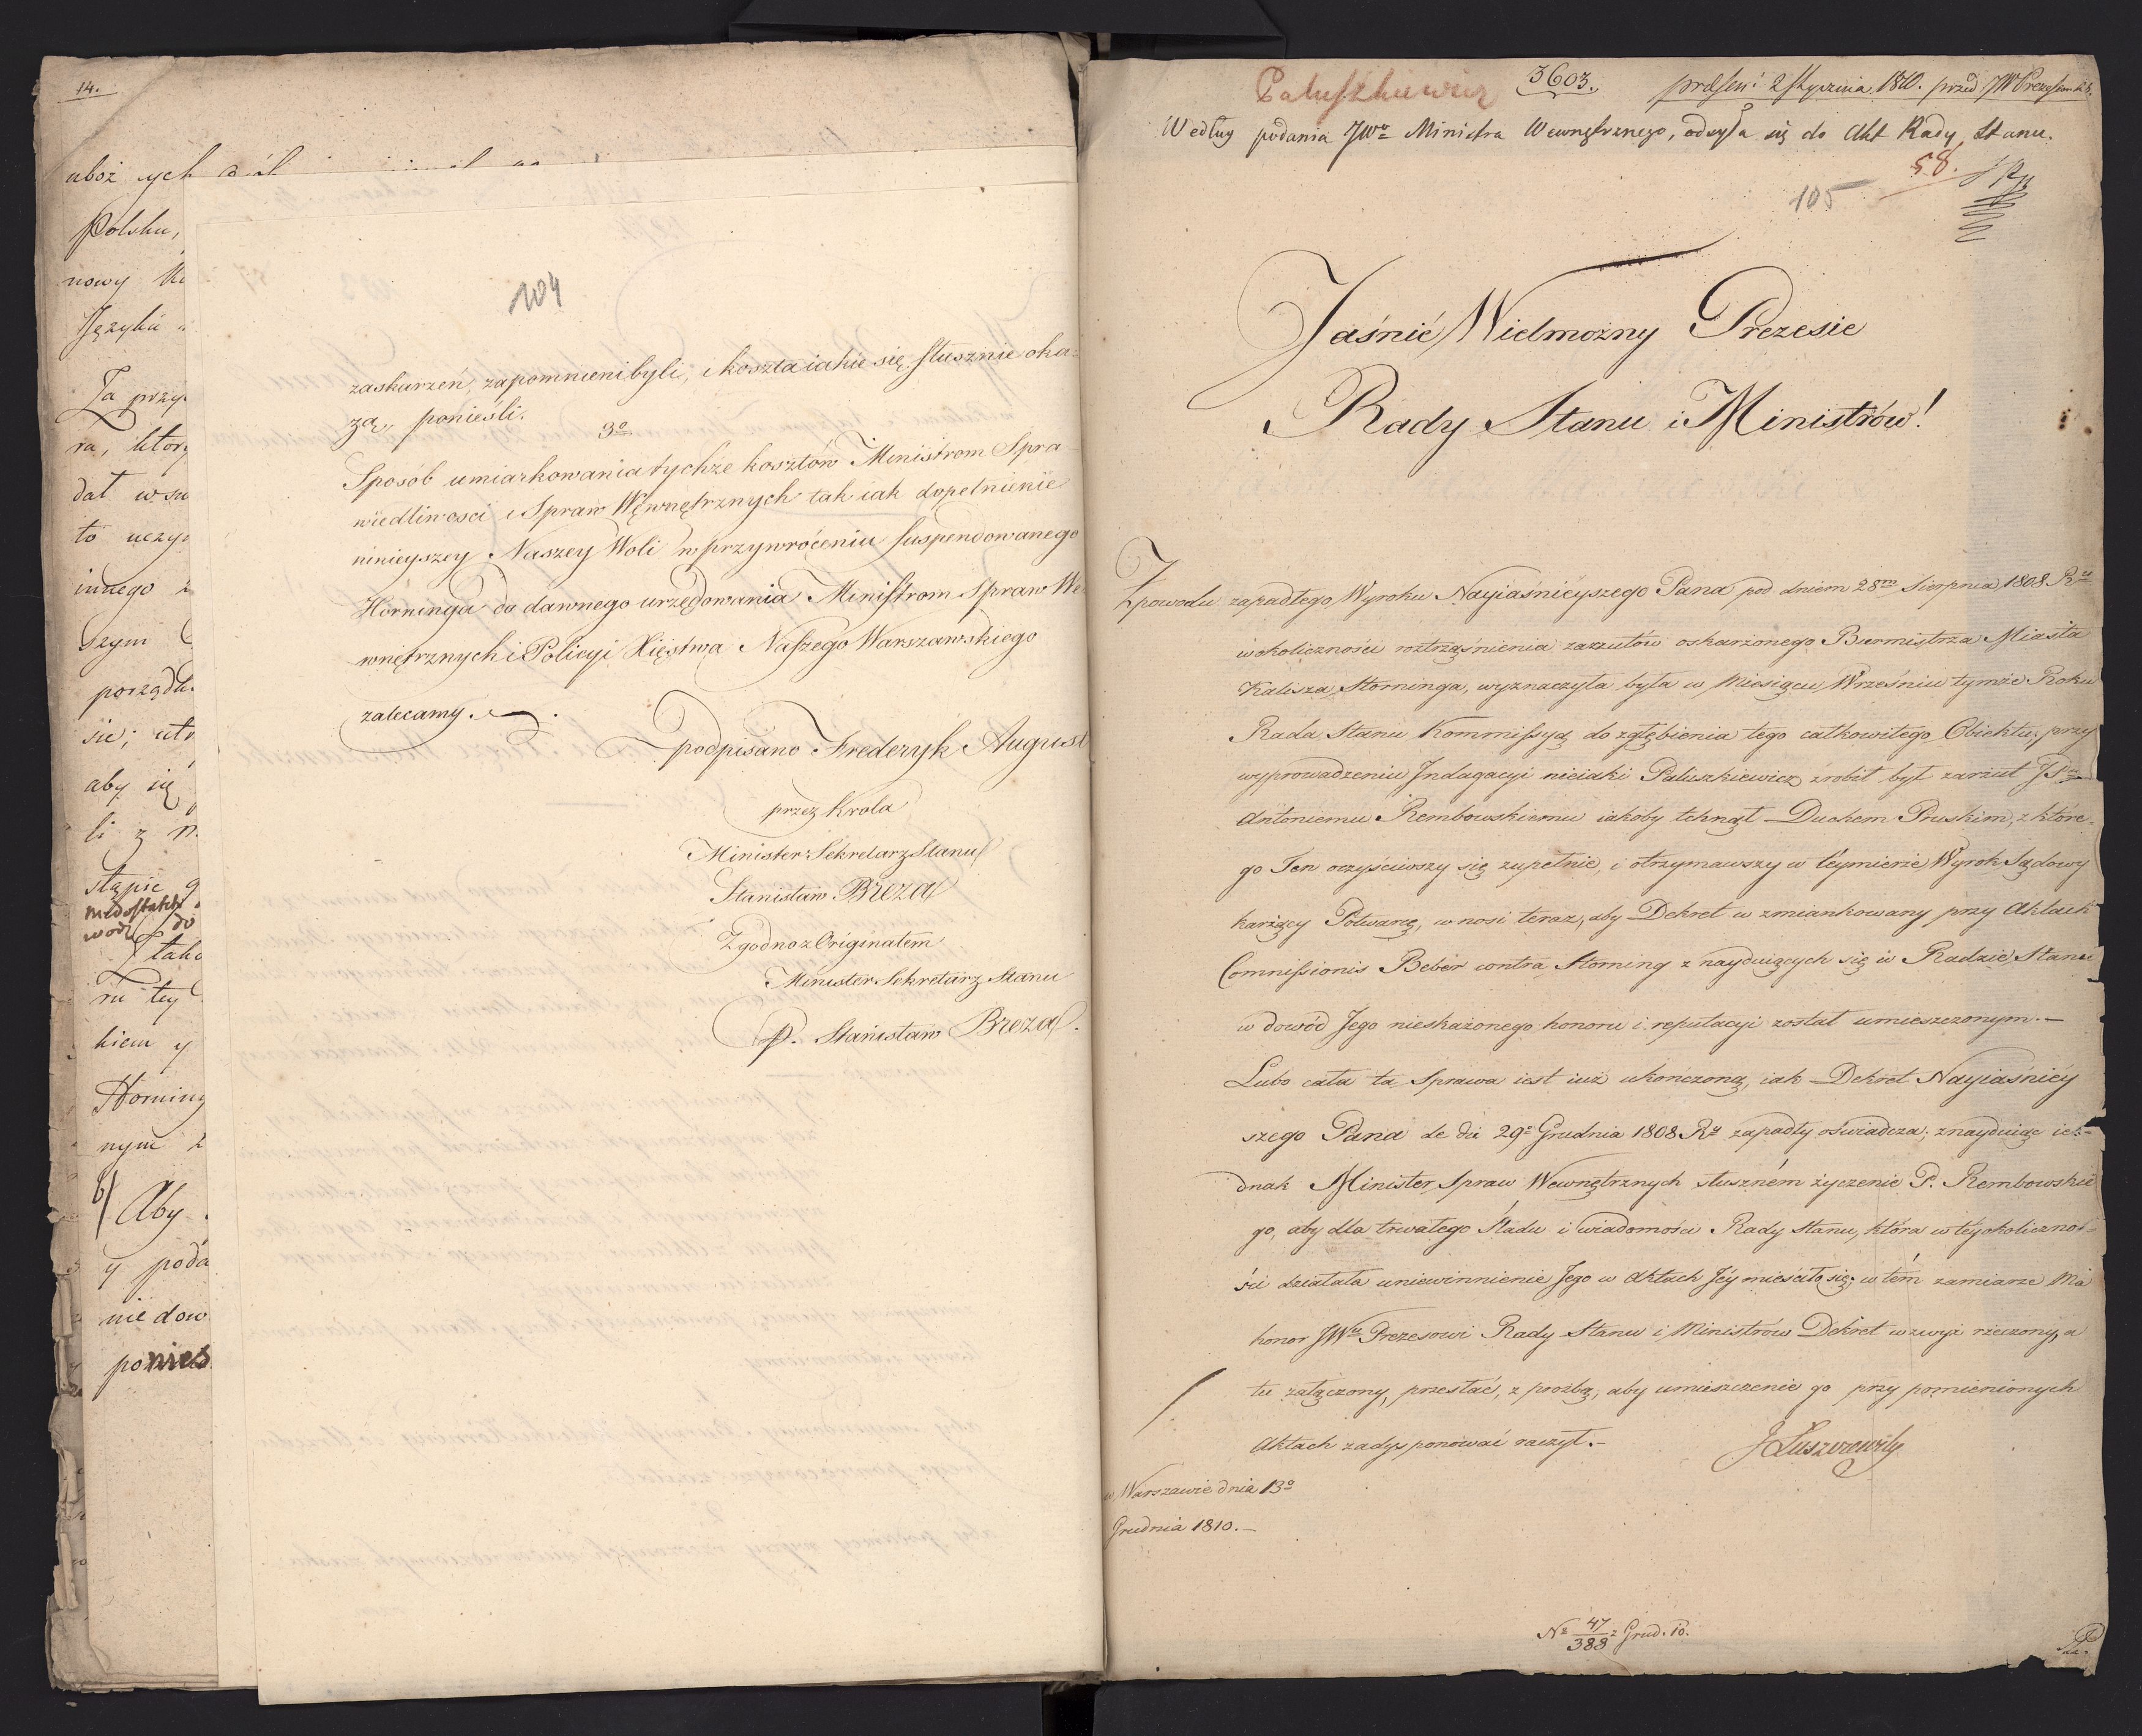 14.
uboż ych
Polsku,
nowy
Języku
Ta przy
ra, który
dał w su
to uczy
innego
szym
porządk
sie; utr
aby się
li z
stąpie g
niedostatek
wodu do
J tako
ru tey
kiem y
Horning
nym
b/
Aby
y poda
nie dow
ponies
104
zaskarzeń, zapomnieni byli, i koszta iakie się słusznie oka=
zą, ponieśli.
3o
Sposób umiarkowania tychże kosztów Ministrom Spra
wiedliwosci i Spraw Wewnętrznych tak iak dopełnienie
ninieyszey Naszey Woli w przywróceniu suspendowanego
Horninga do dawnego urzędowania Ministrom Spraw We
wnętrznych i Policyi Xięstwa Naszego Warszawskiego
zalecamy.
podpisano Frederyk August
przez Krola
Minister Sekretarz Stanu
Stanisław Breza
Zgodno z Originałem
Minister Sekretarz Stanu
Stanisław Breza.
Paluszkiewicz
3603.
praesen: 2 Stycznia 1810. przed JW Prezesem
Według podania JWo Ministra Wewnętrznego, odsyła się do Akt Rady Stanu.
58.
105
Jaśnié Wielmożny Prezesie
Rady Stanu i Ministrów!
Z powodu zapadłego Wyroku Nayiaśnieyszego Pana pod dniem 28m Sierpnia 1808 Ru
w okoliczności roztrząśnienia zarzutów oskarżonego Burmistrza Miasta
Kalisza Horninga, wyznaczyła była w Miesiącu Wrześniu tymże Roku
Rada Stanu Kommissyą do zgłębienia tego całkowitego Obiektu; przy
wyprowadzeniu Jndagacyi nieiaki Paluszkiewicz zrobił był zarzut JPu
Antoniemu Rembowskiemu iakoby tchnął Duchem Pruskim, z które=
go Ten oczyściwszy się zupełnie, i otrzymawszy w teymierze Wyrok Sądowy
karzący Potwarcę, wnosi teraz, aby Dekret w zmiankowany przy Aktach
Commissionis Beber contra Horning z nayduiących się w Radzie Stanu
w dowód Jego nieskażonego honoru i reputacyi został umieszczonym.—
Lubo cała ta Sprawa iest iuż ukończoną, iak Dekret Nayiaśniéy
szego Pana de die 29o Grudnia 1808 Ru zapadły oświadcza; znayduiąc ie=
dnak Minister Spraw Wewnętrznych słuszném życzenie P. Rembowskie
go, aby dla trwałego śladu i wiadomości Rady Stanu, która w téy okoliczno=
ści działała uniewinnienie Jego w Aktach Jéy mieściło się; w tém zamiarze Ma
honor JWu Prezesowi Rady Stanu i Ministrów Dekret wzwyż rzeczony, a
tu załączony, przesłać, z prozbą, aby umieszczenie go przy pomienionych
Aktach zadysponować raczył.—
J Łuszczewski
w Warszawie dnia 13o
Grudnia 1810.—
No 47/388 = Grud. 10.